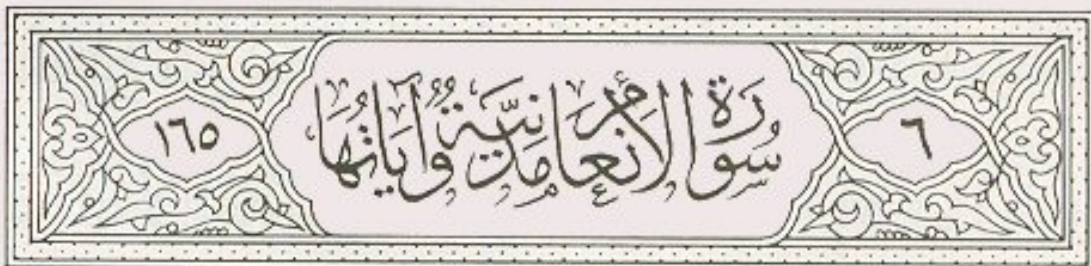 ٦ سُورَة الأنعَام مَدنيَّة وُآيَاتُهَا ١٦٥